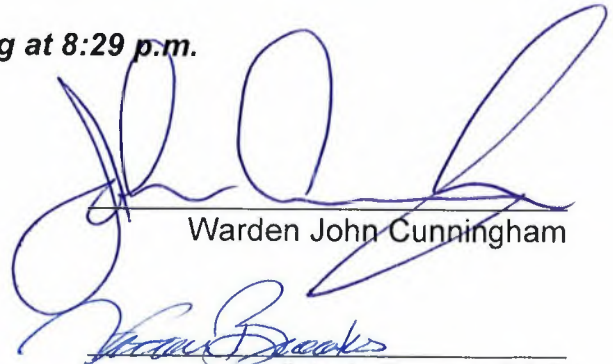 g at 8:29 p.m.
Warden John Cunningham
Brooks